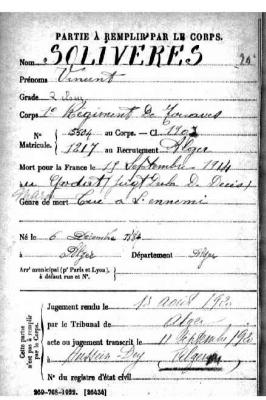 PARTIE À REMPLIR PAR LE CORPS.
Nom SOLIVERES
Prénoms Vincent
Grade
Corps 1er Régiment De Zouaves
N° 5524 au Corps. — Cl. 1902
Matricule. 1217 au Recrutement Alger
Mort pour la France le 17 Septembre 1914
Genre de mort Tué à L'ennemi
Né le 6 Décembre
à Alger Département Alger
Arr' municipal (pr Paris et Lyon),
à défaut rue et N°.
Cette partie n'est pas à remplir par le Corps.
Jugement rendu le 13 août 192
par le Tribunal de Alger
acte ou jugement transcrit le 11 Septembre 192
à Hussein-Dey Alger
N° du registre d'état civil
269-708-1922. [26434]